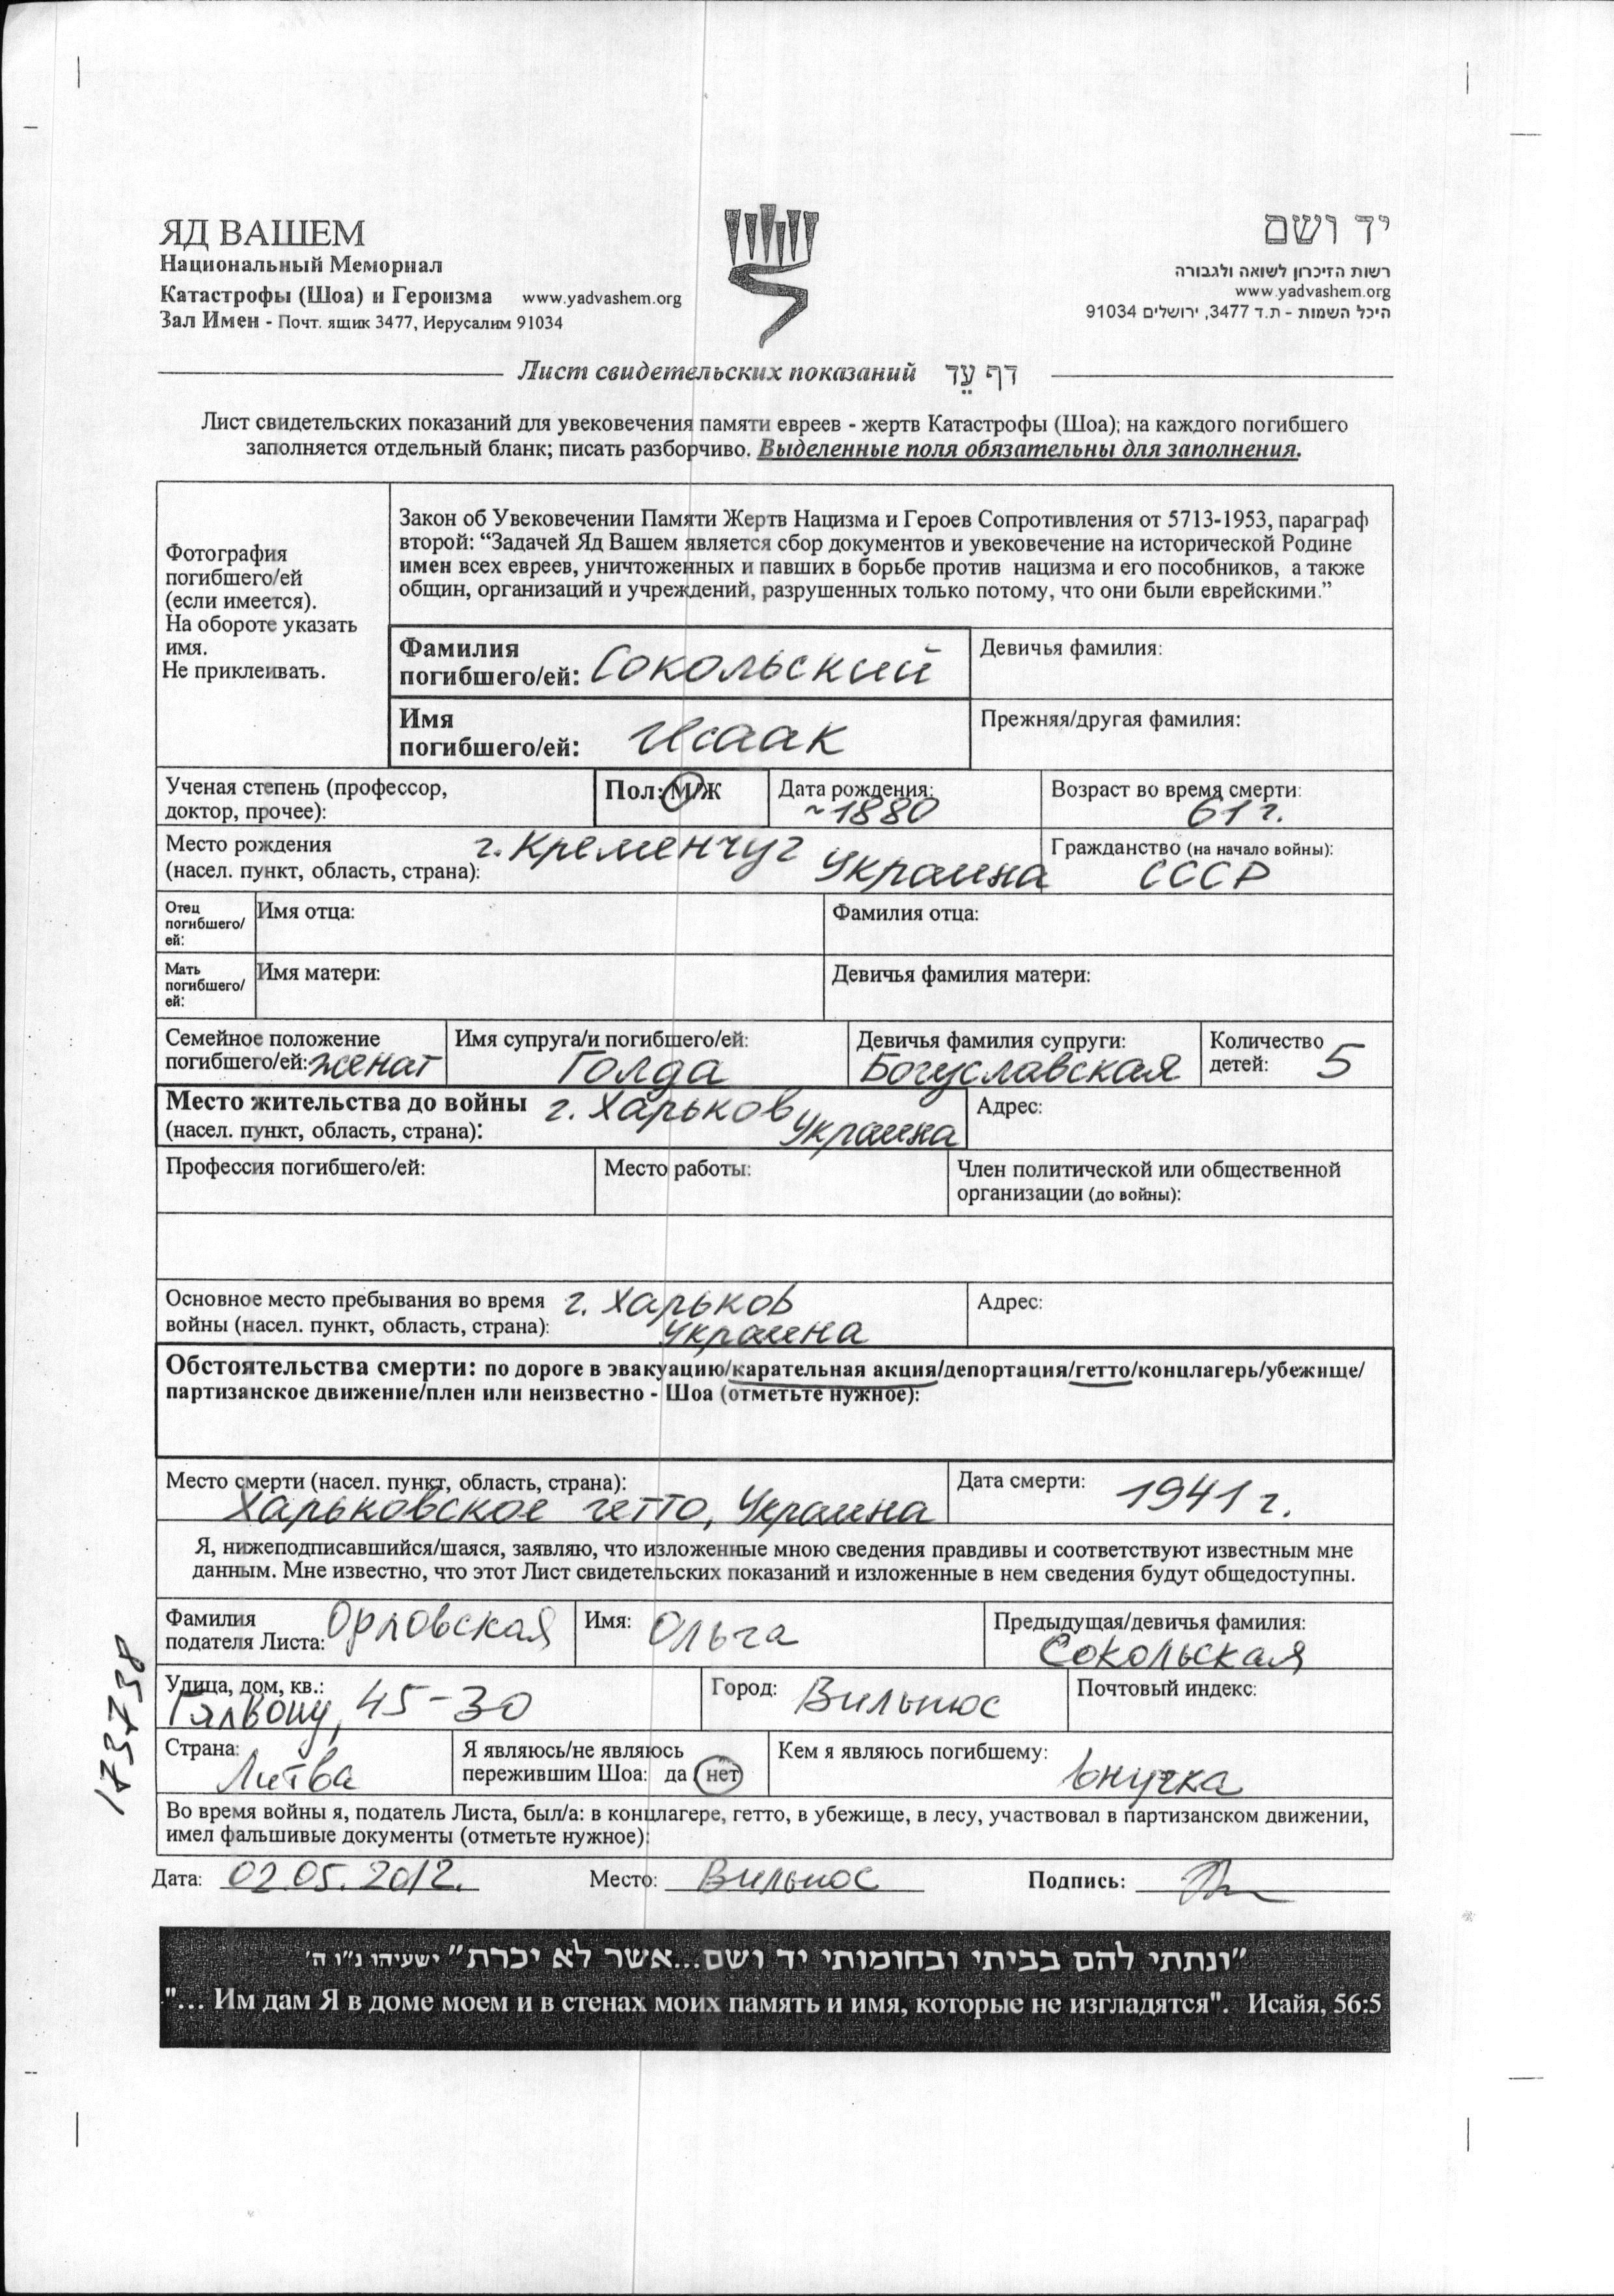 ЯД ВАШЕМ
Национальный Мемориал
Катастрофы (Шоа) и Героизма www.yadvashem.org
Зал Имен - Почт. ящик 3477, Иерусалим 91034
יד ושם
רשות הזיכרון לשואה ולגבורה
www.yadvashem.org
היכל השמות - ת.ד 3477, ירושלים 91034
Лист свидетельских показаний דף עֵד
Лист свидетельских показаний для увековечения памяти евреев - жертв Катастрофы (Шоа); на каждого погибшего
заполняется отдельный бланк; писать разборчиво. Выделенные поля обязательны для заполнения.
Фотография
погибшего/ей
(если имеется).
На обороте указать
имя.
Не приклеивать.
Закон об Увековечении Памяти Жертв Нацизма и Героев Сопротивления от 5713-1953, параграф
второй: “Задачей Яд Вашем является сбор документов и увековечение на исторической Родине
имен всех евреев, уничтоженных и павших в борьбе против нацизма и его пособников, а также
общин, организаций и учреждений, разрушенных только потому, что они были еврейскими.”
Фамилия
погибшего/ей: Сокольский
Девичья фамилия:
Имя
погибшего/ей: Исаак
Прежняя/другая фамилия:
Ученая степень (профессор,
доктор, прочее):
Пол: М/Ж
Дата рождения:
~1880
Возраст во время смерти:
61 г.
Место рождения
(насел. пункт, область, страна): г. Кременчуг Украина
Гражданство (на начало войны):
СССР
Отец
погибшего/
ей:
Имя отца:
Фамилия отца:
Мать
погибшего/
ей:
Имя матери:
Девичья фамилия матери:
Семейное положение
погибшего/ей: женат
Имя супруга/и погибшего/ей:
Голда
Девичья фамилия супруги:
Богуславская
Количество
детей: 5
Место жительства до войны г. Харьков
(насел. пункт, область, страна): Украина
Адрес:
Профессия погибшего/ей:
Место работы:
Член политической или общественной
организации (до войны):
Основное место пребывания во время г. Харьков
войны (насел. пункт, область, страна): Украина
Адрес:
Обстоятельства смерти: по дороге в эвакуацию/карательная акция/депортация/гетто/концлагерь/убежище/
партизанское движение/плен или неизвестно - Шоа (отметьте нужное):
Место смерти (насел. пункт, область, страна):
Харьковское гетто, Украина
Дата смерти: 1941 г.
Я, нижеподписавшийся/шаяся, заявляю, что изложенные мною сведения правдивы и соответствуют известным мне
данным. Мне известно, что этот Лист свидетельских показаний и изложенные в нем сведения будут общедоступны.
Фамилия
подателя Листа: Орловская
Имя: Ольга
Предыдущая/девичья фамилия:
Сокольская
Улица, дом, кв.:
Гялвону, 45-30
Город: Вильнюс
Почтовый индекс:
Страна:
Литва
Я являюсь/не являюсь
пережившим Шоа: да нет
Кем я являюсь погибшему:
внучка
Во время войны я, податель Листа, был/а: в концлагере, гетто, в убежище, в лесу, участвовал в партизанском движении,
имел фальшивые документы (отметьте нужное):
Дата: 02.05.2012. Место: Вильнюс Подпись:
173738
"ונתתי להם בביתי ובחומותי יד ושם...אשר לא יכרת" ישעיהו נ"ו ה'
"... Им дам Я в доме моем и в стенах моих память и имя, которые не изгладятся". Исайя, 56:5